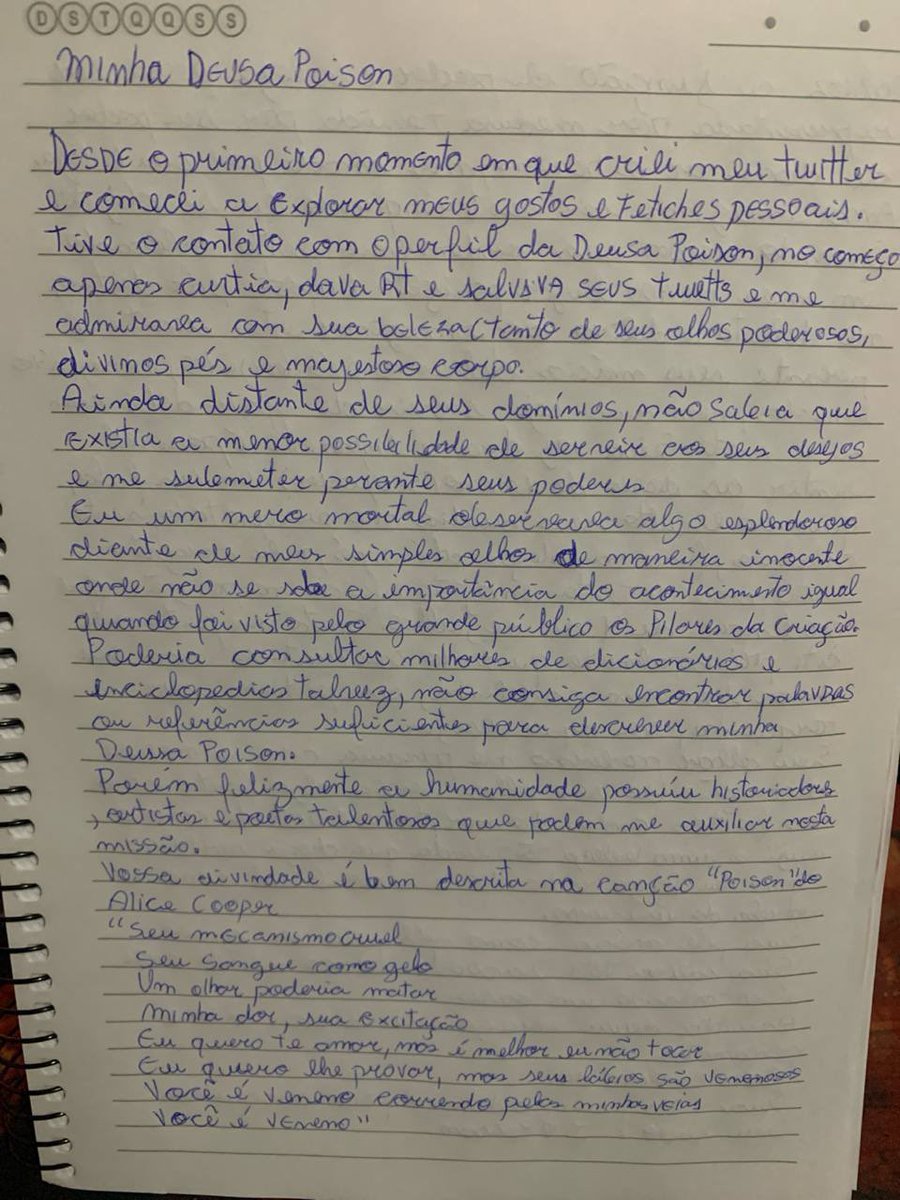 D S T Q Q S S
Minha Deusa Poison
Desde o primeiro momento em que criei meu twitter
e comecei a explorar meus gostos e fetiches pessoais.
Tive o contato com o perfil da Deusa Poison, no começo
apenas curtia, dava RT e salvava seus twetts e me
admirava com sua beleza (tanto de seus olhos poderosos,
divinos pés e majestoso corpo.
Ainda distante de seus domínios, não sabia que
existia a menor possibilidade de servir aos seus desejos
e me submeter perante seus poderes
Eu um mero mortal observava algo esplendoroso
diante de meus simples olhos de maneira inocente
onde não se sabe a importância do acontecimento igual
quando foi visto pelo grande público os Pilares da Criação.
Poderia consultar milhares de dicionários e
enciclopedias talvez, não consiga encontrar palavras
ou referências suficientes para descrever minha
Deusa Poison.
Porém felizmente a humanidade possuiu historiadores
, artistas e poetas talentosos que podem me auxiliar nesta
missão.
Vossa divindade é bem descrita na canção "Poison" do
Alice Cooper
"Seu mecanismo cruel
Seu sangue como gelo
Um olhar poderia matar
Minha dor, sua excitação
Eu quero te amar, mas é melhor eu não tocar
Eu quero lhe provar, mas seus lábios são venenosos
Você é veneno correndo pelas minhas veias
Você é veneno"